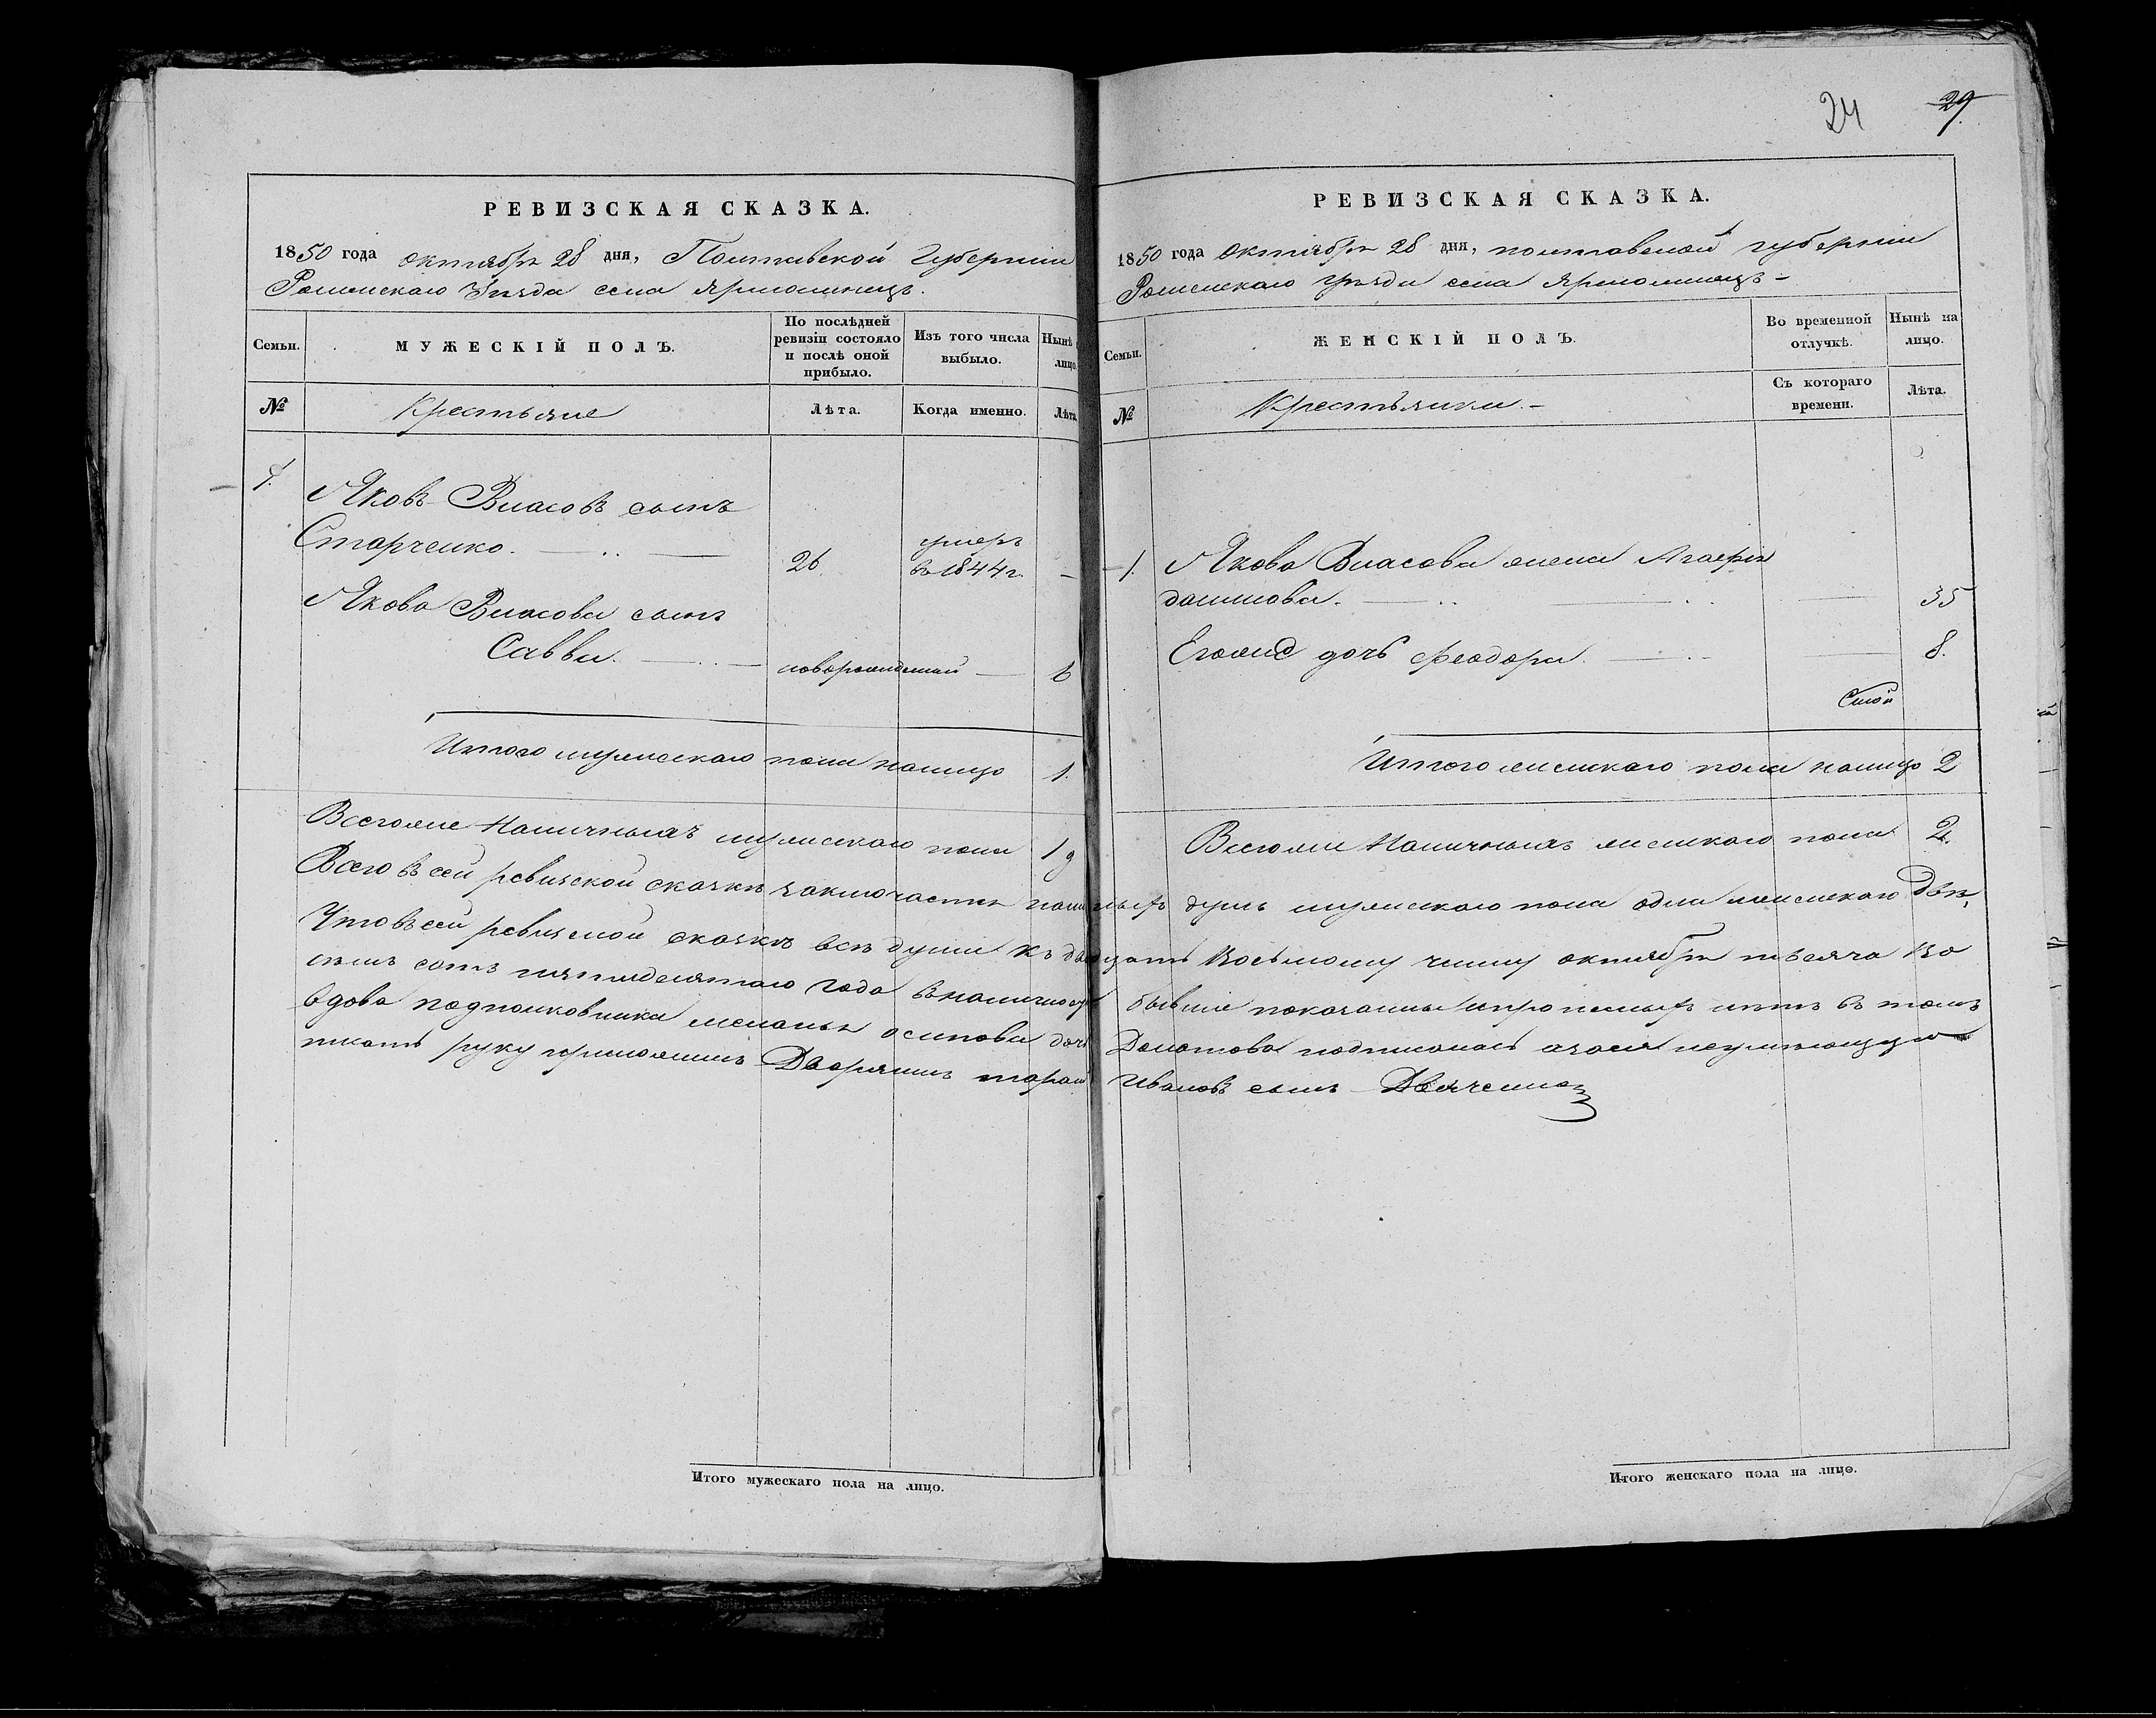 РЕВИЗСКАЯ СКАЗКА.
1850 года октября 28 дня, Полтавской Губернии
Роменскаго Уезда села Ярмолинецъ.
Семьи.
МУЖЕСКІЙ ПОЛЪ.
По послѣдней ревизіи состояло и послѣ оной прибыло.
Изъ того числа выбыло.
Нынѣ лицо
№
Крестьяне
Лѣта.
Когда именно.
Лѣта
1.
Яковъ Власовъ сынъ
Старченко.
26
умеръ
въ 1844 г.
Якова Власова сынъ
Савва.
новорожденный
6
Итого мужескаго пола налицо 1.
Всего же Наличныхъ мужескаго пола 1
Итого мужескаго пола на лицо.
24 29
РЕВИЗСКАЯ СКАЗКА.
1850 года октября 28 дня, полтавской губернии
Роменскаго уезда села Ярмолинецъ
Семьи.
ЖЕНСКІЙ ПОЛЪ.
Во временной отлучкѣ.
Нынѣ на лицо.
№
Крестьянки.
Съ котораго времени.
Лѣта.
1. Якова Власова жена Агафия
35
Его же дочь Феодора.
8.
Итого женскаго пола налицо 2
Всего же Наличныхъ женскаго пола 2.
Всего въ сей ревизской сказкѣ заключается наличныхъ душъ мужескаго пола одна женскаго двѣ,
Что въ сей ревизской сказкѣ всѣ души къ двадцать Восьмому числу октября тысяча во
семь сотъ пятидесятаго года въ наличности бывшие показаны и прописныхъ нѣтъ въ томъ
вдова подполковника осипова дочь подписалась а за ея неумеющую
писать руку приложилъ Дворянинъ Тарасъ Ивановъ сынъ
Итого женскаго пола на лицо.